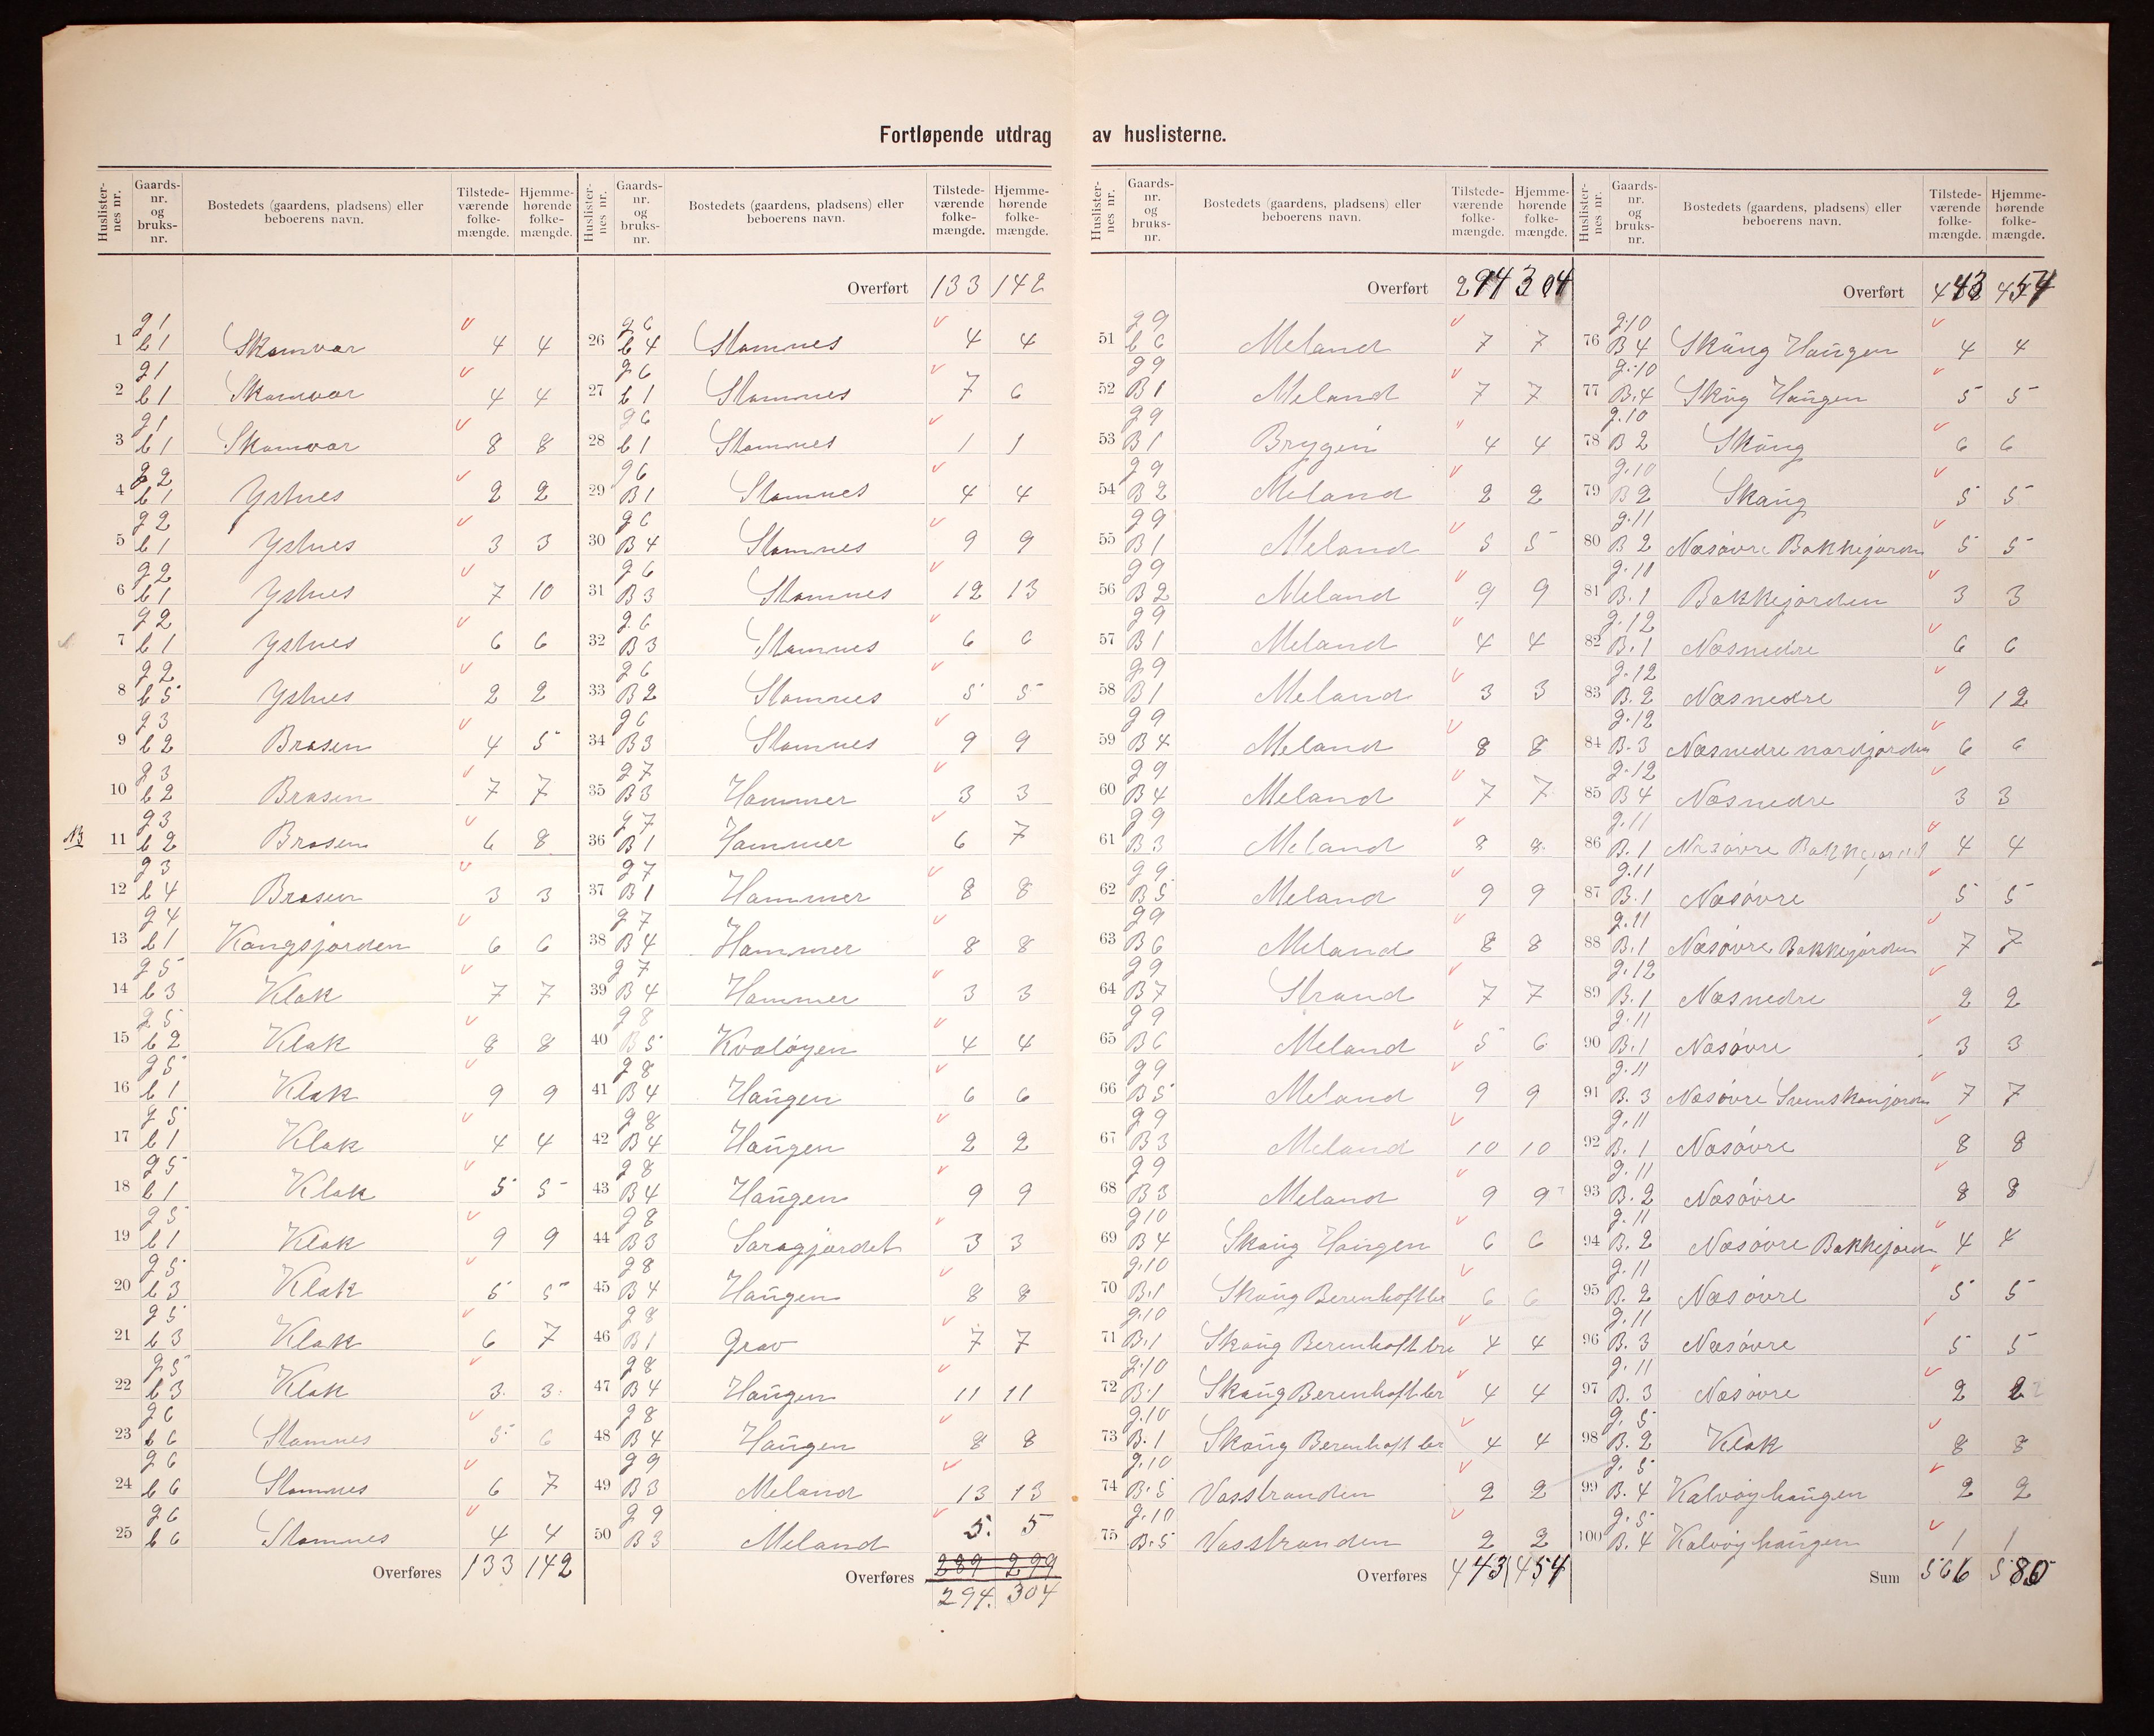 Fortløpende utdrag av huslisterne.
Huslister-nes nr. Gaards-nr. og bruks-nr. Bostedets (gaardens, pladsens) eller beboerens navn. Tilstede-værende folke-mængde. Hjemme-hørende folke-mængde.
1 g1 b1 Skamvar 4 4
2 g1 b1 Skamvar 4 4
3 g1 b1 Skamvar 8 8
4 g2 b1 Ystnes 2 2
5 g2 b1 Ystnes 3 3
6 g2 b1 Ystnes 7 10
7 g2 b1 Ystnes 6 6
8 g2 b5 Ystnes 2 2
9 g3 b2 Brasen 4 5
10 g3 b2 Brasen 7 7
N3 11 g3 b2 Brasen 6 8
12 g3 b4 Brasen 3 3
13 g4 b1 Kongsjorden 6 6
14 g5 b3 Klak 7 7
15 g5 b2 Klak 8 8
16 g5 b1 Klak 9 9
17 g5 b1 Klak 4 4
18 g5 b1 Klak 5 5
19 g5 b1 Klak 9 9
20 g5 b3 Klak 5 5
21 g5 b3 Klak 6 7
22 g5 b3 Klak 3 3
23 g6 b6 Stamnes 5 6
24 g6 b6 Stamnes 6 7
25 g6 b6 Stamnes 4 4
Overføres 133 142
Huslister-nes nr. Gaards-nr. og bruks-nr. Bostedets (gaardens, pladsens) eller beboerens navn. Tilstede-værende folke-mængde. Hjemme-hørende folke-mængde.
Overført 133 142
26 g6 b4 Stamnes 4 4
27 g6 b1 Stamnes 7 6
28 g6 b1 Stamnes 1 1
29 g6 B1 Stamnes 4 4
30 g6 B4 Stamnes 9 9
31 g6 B3 Stamnes 12 13
32 g6 B3 Stamnes 6 6
33 g6 B2 Stamnes 5 5
34 g6 B3 Stamnes 9 9
35 g7 B3 Hammer 3 3
36 g7 B1 Hammer 6 7
37 g7 B1 Hammer 8 8
38 g7 B4 Hammer 8 8
39 g7 B4 Hammer 3 3
40 g8 B5 Kvaløyen 4 4
41 g8 B4 Haugen 6 6
42 g8 B4 Haugen 2 2
43 g8 B4 Haugen 9 9
44 g8 B3 Saragjordet 3 3
45 g8 B4 Haugen 8 8
46 g8 B1 Grav 7 7
47 g8 B4 Haugen 11 11
48 g8 B4 Haugen 8 8
49 g9 B3 Meland 13 13
50 g9 B3 Meland 5. 5
Overføres 289 299
294. 304
Huslister-nes nr. Gaards-nr. og bruks-nr. Bostedets (gaardens, pladsens) eller beboerens navn. Tilstede-værende folke-mængde. Hjemme-hørende folke-mængde.
Overført 294 304
51 g9 b6 Meland 7 7
52 g9 B1 Meland 7 7
53 g9 B1 Brygen 4 4
54 g9 B2 Meland 2 2
55 g9 B1 Meland 5 5
56 g9 B2 Meland 9 9
57 g9 B1 Meland 4 4
58 g9 B1 Meland 3 3
59 g9 B4 Meland 8 8
60 g9 B4 Meland 7 7
61 g9 B3 Meland 8 8
62 g9 B5 Meland 9 9
63 g9 B6 Meland 8 8
64 g9 B7 Strand 7 7
65 g9 B6 Meland 5 6
66 g9 B5 Meland 9 9
67 g9 B3 Meland 10 10
68 g9 B3 Meland 9 9
69 g10 B4 Skaug Haugen 6 6
70 g.10 B.1 Skaug Berenhoftbr 6 6
71 g.10 B.1 Skaug Berenhoft bre 4 4
72 g.10 B.1 Skaug Berenhoft br 4 4
73 g.10 B.1 Skaug Berenhoft br 4 4
74 g.10 B.5 Vasstranden 2 2
75 g.10 B.5 Vasstranden 2 2
Overføres 443 454
Huslister-nes nr. Gaards-nr. og bruks-nr. Bostedets (gaardens, pladsens) eller beboerens navn. Tilstede-værende folke-mængde. Hjemme-hørende folke-mængde.
Overført 443 454
76 g.10 B4 Skaug Haugen 4 4
77 g.10 B.4 Skug Haugen 5 5
78 g.10 B2 Skaug 6 6
79 g.10 B2 Skaug 5 5
80 g.11 B2 Næsøvre Bakkejorden 5 5
81 g.11 B.1 Bakkejorden 3 3
82 g.12 B.1 Næsnedre 6 6
83 g.12 B.2 Næsnedre 9 12
84 g.12 B.3 Næsnedre nordjorden 6 6
85 g.12 B4 Næsnedre 3 3
86 g.11 B.1 Næsøvre Bakkejord 4 4
87 g.11 B.1 Næsøvre 5 5
88 g.11 B.1 Næsøvre Bakkejorden 7 7
89 g.12 B.1 Næsnedre 2 2
90 g.11 B.1 Næsøvre 3 3
91 g.11 B.3 Næsøvre 7 7
92 g.11 B.1 Næsøvre 8 8
93 g.11 B.2 Næsøvre 8 8
94 g.11 B.2 Næsøvre Bakkejorden 4 4
95 g.11 B.2 Næsøvre 5 5
96 g.11 B.3 Næsøvre 5 5
97 g.11 B.3 Næsøvre 2 2
98 g.5 B.2 Klak 8 8
99 g.5 B.4 Kalvøyhaugen 2 2
100 g.5 B.4 Kalvøyhaugen 1 1
Sum 566 580